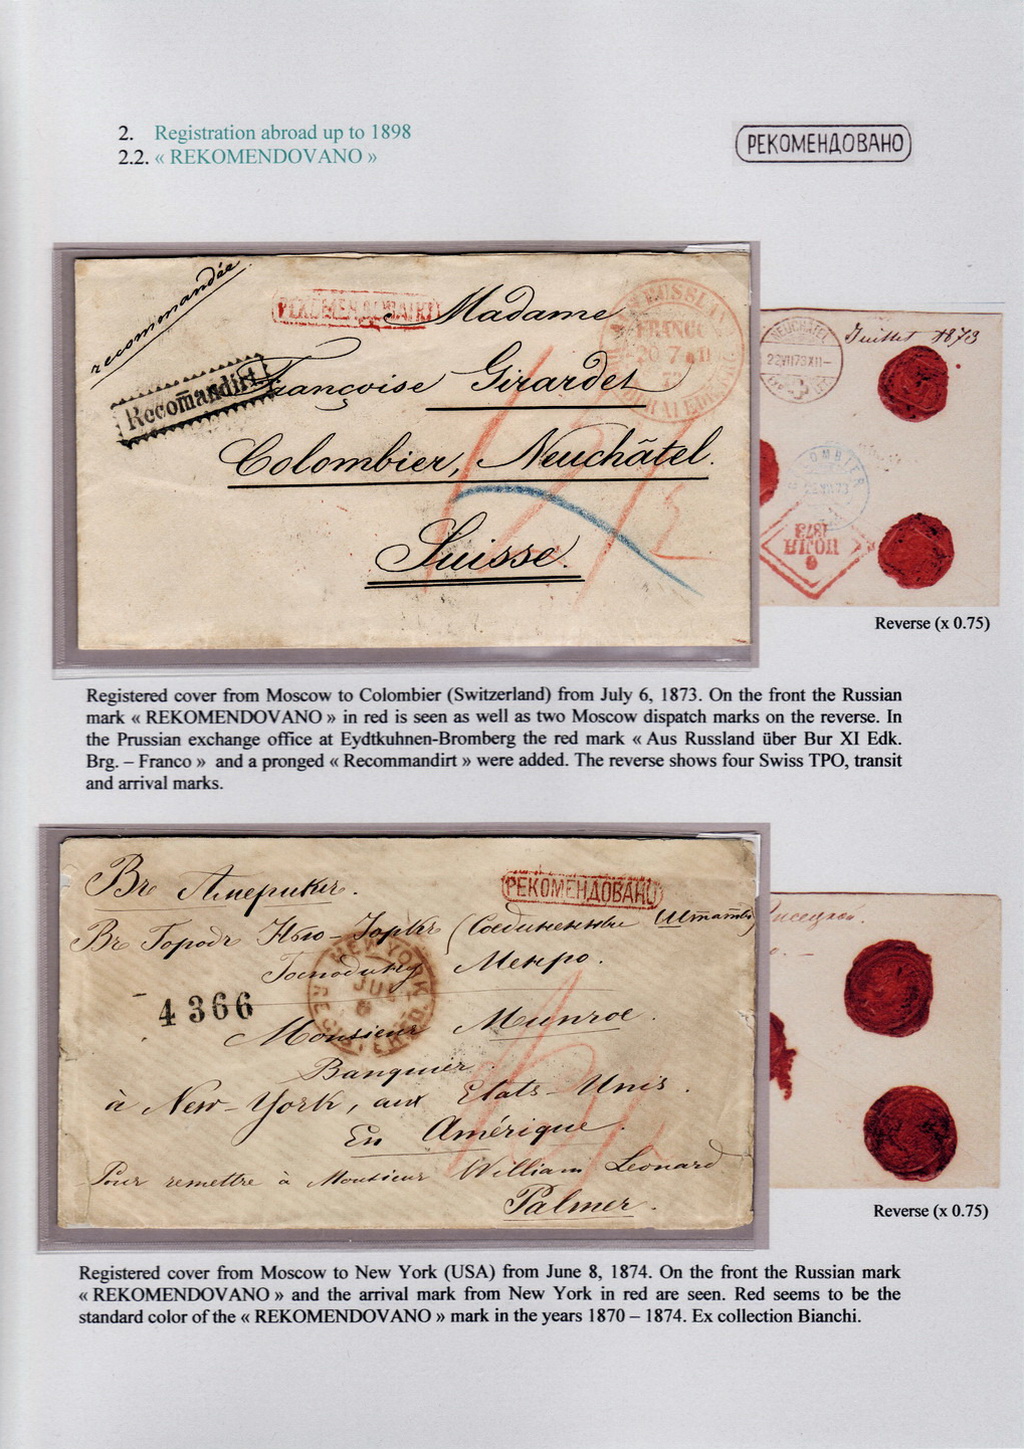 2. Registration abroad up to 1898
2.2. « REKOMENDOVANO »
РЕКОМЕНДОВАНО
recommandée
Madame
Recomandirt
Françoise Girardet
Colombier, Neuchâtel.
Suisse.
FRANCO
NEUCHATEL
Juillet 1873
22VII73XII-
1873
ИЮЛЯ
6
Reverse (x 0.75)
Registered cover from Moscow to Colombier (Switzerland) from July 6, 1873. On the front the Russian
mark « REKOMENDOVANO » in red is seen as well as two Moscow dispatch marks on the reverse. In
the Prussian exchange office at Eydtkuhnen-Bromberg the red mark « Aus Russland über Bur XI Edk.
Brg. – Franco » and a pronged « Recommandirt » were added. The reverse shows four Swiss TPO, transit
and arrival marks.
Въ Америку.
РЕКОМЕНДОВАНО
Въ Городъ Нью-Іоркъ (Соединенные Штаты)
Господину Менро.
NEW YORK
JUL
4366
Monsieur Munroe.
Banquier
à New-York, aux Etats-Unis.
En Amérique.
Pour remettre à Monsieur William Leonard
Palmer.
Reverse (x 0.75)
Registered cover from Moscow to New York (USA) from June 8, 1874. On the front the Russian mark
« REKOMENDOVANO » and the arrival mark from New York in red are seen. Red seems to be the
standard color of the « REKOMENDOVANO » mark in the years 1870 – 1874. Ex collection Bianchi.